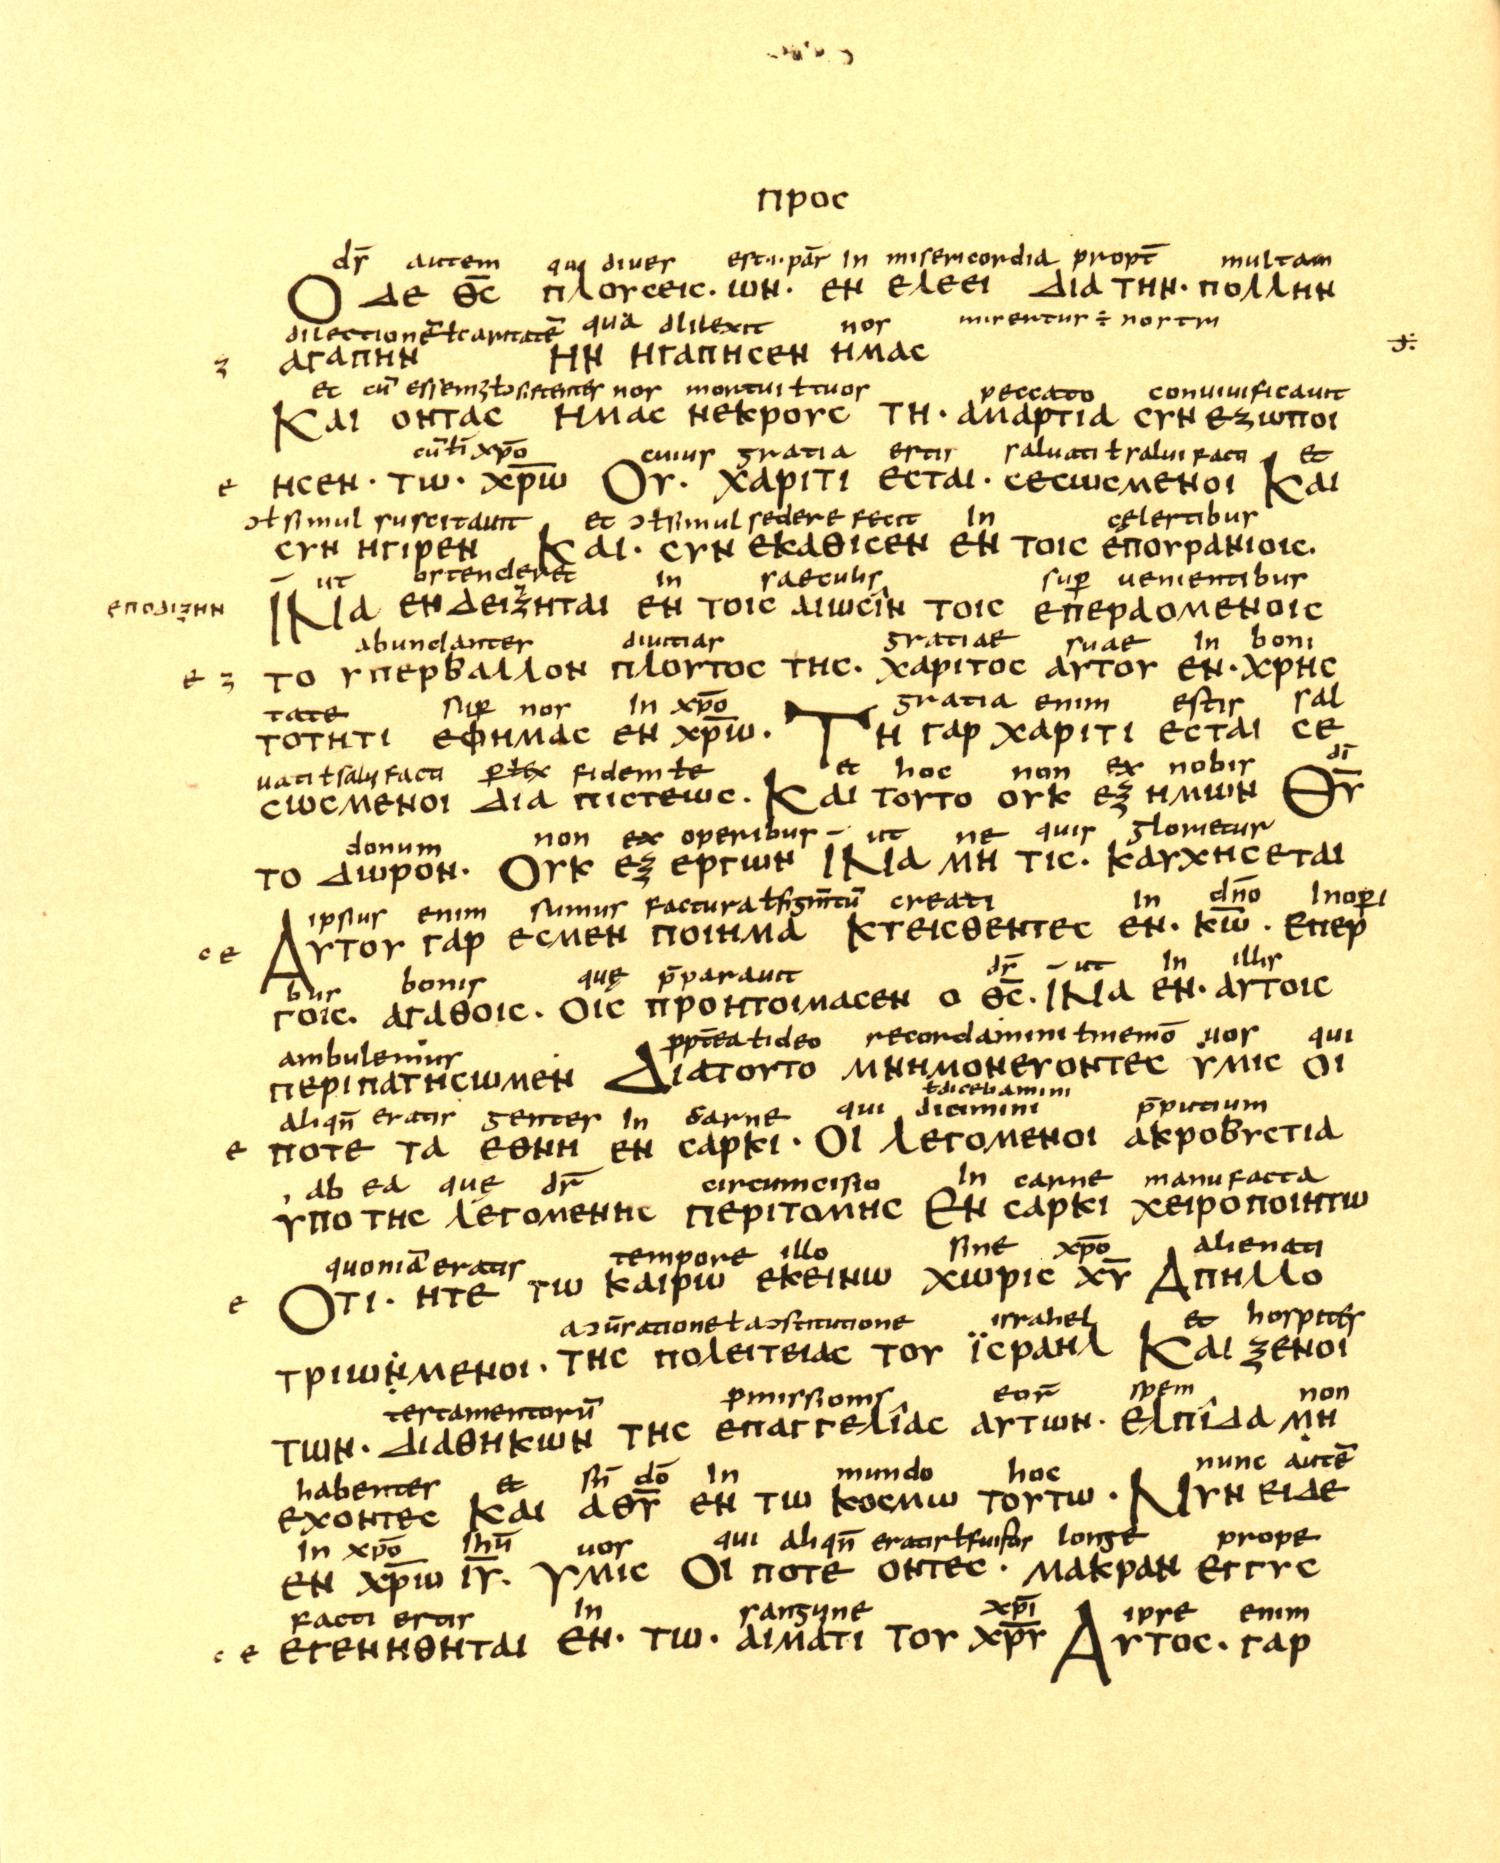 προс
dr̅ autem qui diues est·i·par̅ In misericordia propt̅ multam
Ο δε θ̅с̅ πλουсειс· ων· εν ελεει δια την· πολλην
dilectione̅ ł caritate̅ qua dilexit nos mirentur ÷ nostra
αγαπην ην ηγαπηсεν ημαс
et cu̅ nos mortui ł tuos peccato conuiuificauit
Και οντας ημας νεκρους τη· αμαρτια сυνεζωποι
cuius gratia estis saluati ł salui facti et
e ηсεν· τω· χ̅ρ̅ω̅ Ου· χαριτι εсται· сεсωсμενοι Και
ɔ ł simul suscitauit et ɔ ł simul sedere fecit In cęlestibus
сυν ηγιρεν Και· сυν εκαθιсεν εν τοιс επουρανιοιс.
ut ostenderet In saeculis sup uenientibus
Ινα ενδειξηται εν τοιс αιωсιν τοιс επερχομενοιс
abundanter diuitias gratiae suae In boni
το υπερβαλλον πλουτοс τηс· χαριτοс αυτου εν· χρηс
tate sup nos In xp̅o gratia enim estis sal
τοτητι εφημαс εν χ̅ρ̅ω̅. Τη γαρ χαριτι εсται сε
uati ł salui facti p ł ex fidem ł e et hoc non ex nobis di̅
сωсμενοι δια πιсτεωс. Και τουτο ουκ εξ ημων Θ̅υ̅
donum non ex operibus ut ne quis glorietur
το δωρον· Ουκ εξ εργων Ινα μη τιс· καυχηсεται
ipsius enim sumus factura ł figm̅tu̅ creati In dn̅o Inoperi
c e Αυτου γαρ εсμεν ποιημα κτειсθεντεс εν· κ̅ω̅ . επερ
bus bonis quę p̅parauit dr̅ ut In illis
γοιс. αγαθοιс· οιс προητοιμαсεν ο θ̅с̅. Ινα εν· αυτοιс
ambulemus pp̅tea ł ideo recordamini ł memo̅ uos qui
περιπατηсωμεν Διατουτο μνημονευοντεс υμιс οι
ł dicebamini
aliqn̅ eratis gentes In carne qui dicimini p̅putium
e ποτε τα εθνη εν сαρκι· Οι λεγομενοι ακροβυсτια
ab ea quę dr̅ circumcisio In carne manufacta
υπο τηс λεγομενηс περιτομηс Εν сαρκι χειροποιητω
quonia̅ eratis tempore illo sine xp̅o alienati
e Οτι· ητε τω καιρω εκεινω χωριс χ̅υ̅ Απηλλο
israhel et hospites
τριωμενοι· τηс πολειτειαс του ϊсραηλ Και ξενοι
testamentoru̅ p̅missionis eor̅ spem non
των· διαθηκων τηс επαγγελιαс αυτων· ελπιδα μη
habentes et sn̅ do̅ In mundo hoc nunc aute̅
εχοντεс και αθ̅υ̅ εν τω κοсμω τουτω· Νυν ειδε
In xp̅o ihu̅ uos qui aliqn̅ eratis ł fuistis longe prope
εν χ̅ρ̅ω̅ ι̅υ̅. υμιс Οι ποτε οντεс· μακραν εγγυс
facti estis In sanguine xp̅i ipse enim
c e εγεννηθηται εν· τω· αιματι του χ̅ρ̅υ̅ Αυτοс· γαρ